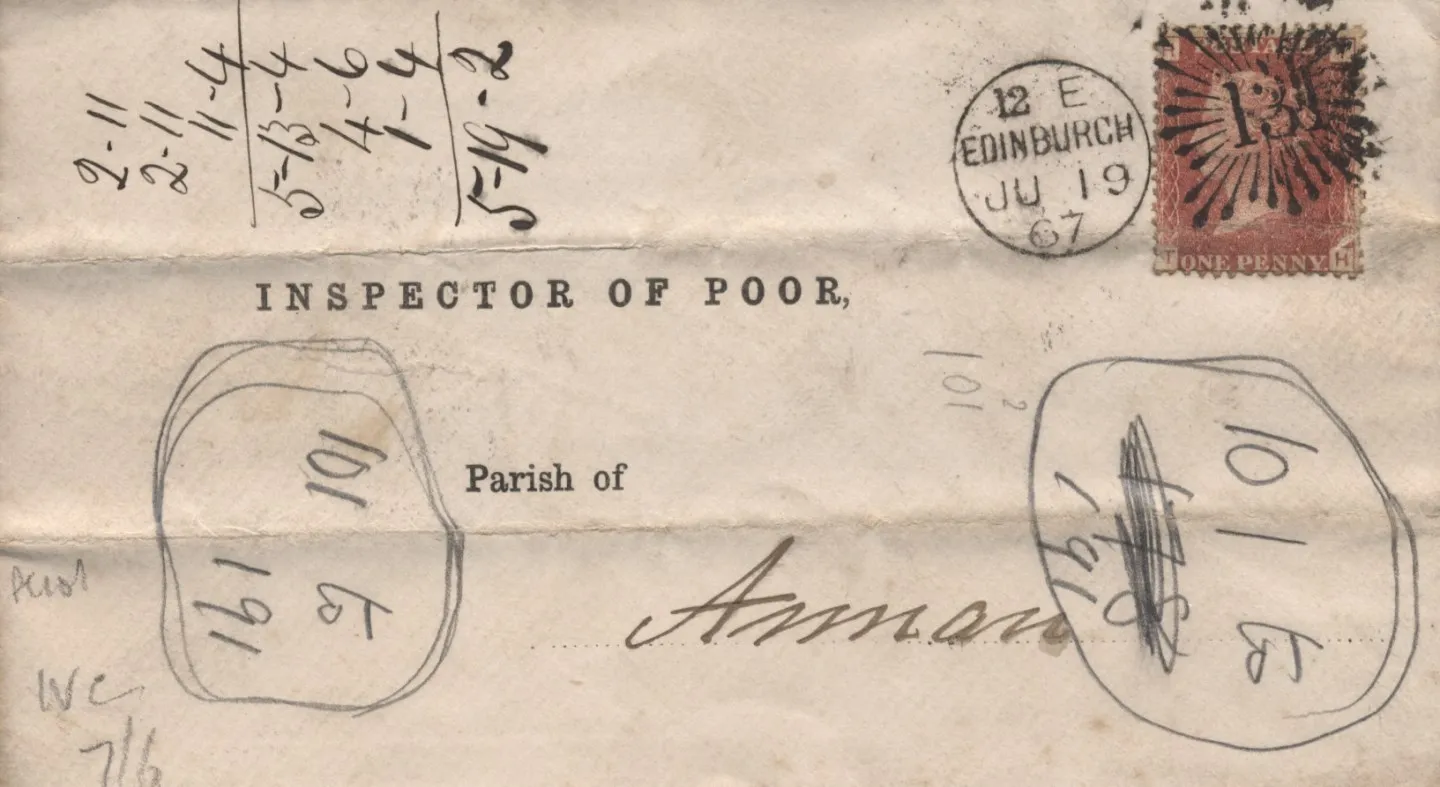 2-11
2-11
11-4
5-13-4
4-6
1-4
5-19-2
12 E
EDINBURGH
JU 19
67
131
ONE PENNY
H
INSPECTOR OF POOR,
101
2
101
101
Parish of
191
Annan
WC
7/6